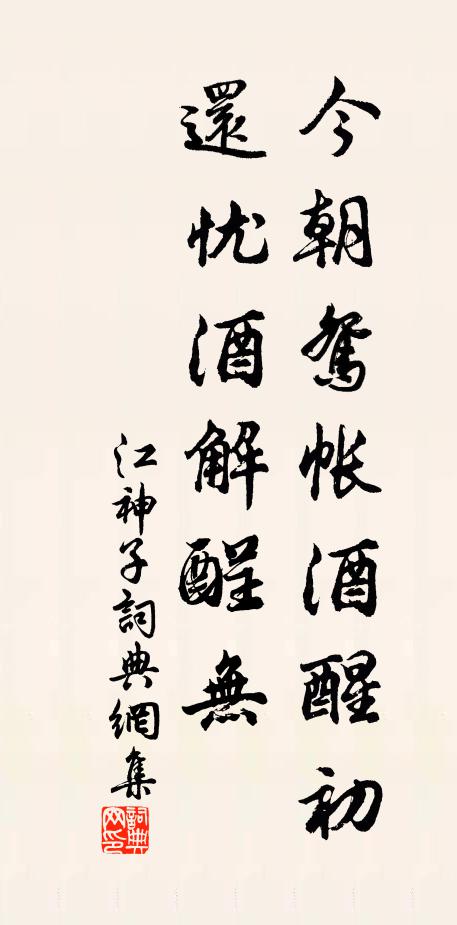 今朝鴛帐酒醒初
還忧酒解酲無
江神子詞典網集
詞典网印